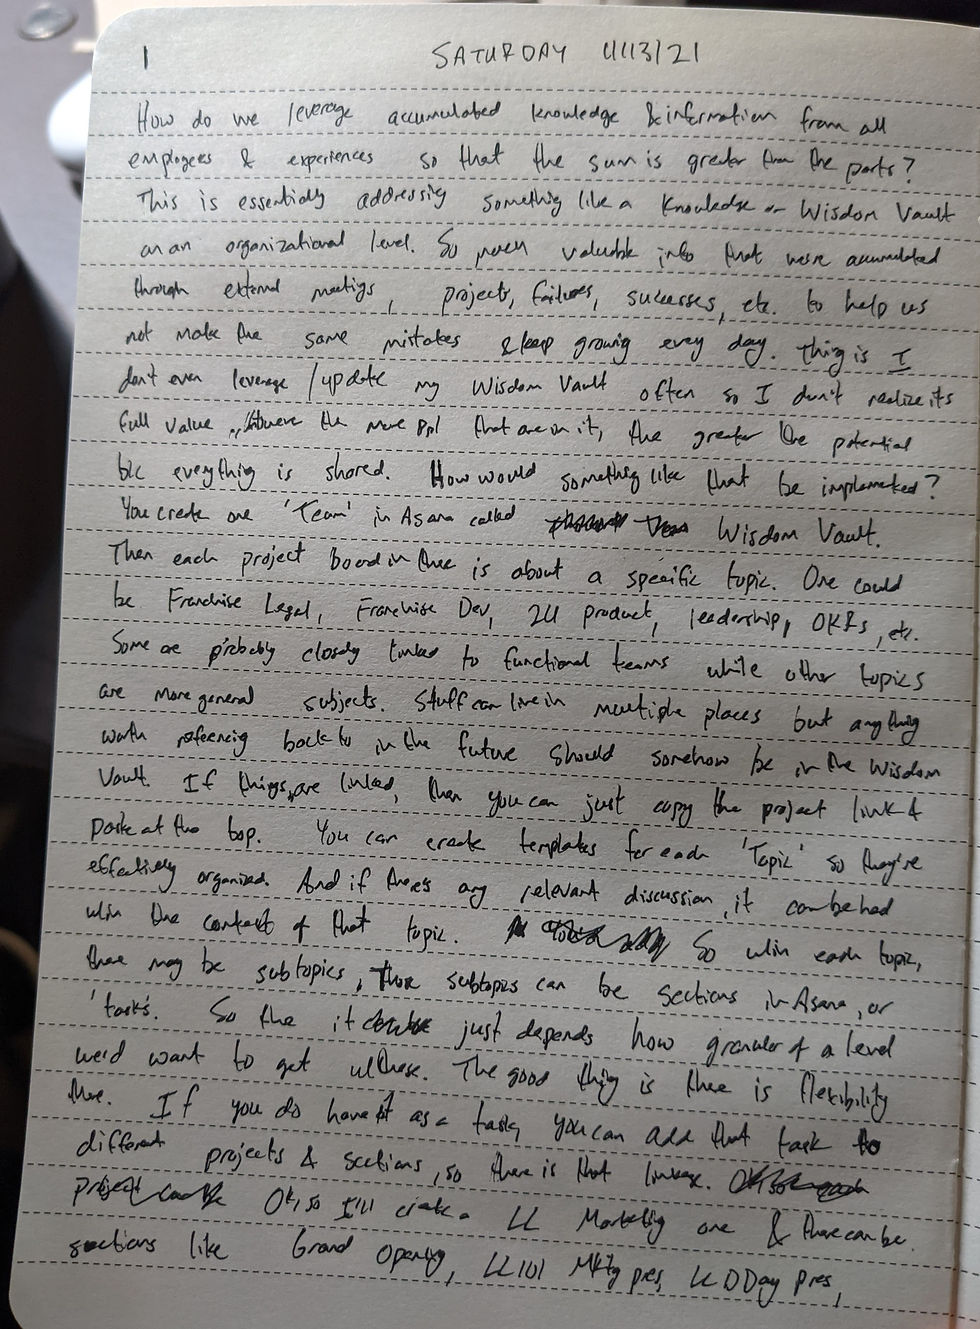 1 SATURDAY 11/13/21
How do we leverage accumulated knowledge & information from all
employees & experiences so that the sum is greater than the parts?
This is essentially addressing something like a Knowledge or Wisdom Vault
on an organizational level. So much valuable info that we've accumulated
through external meetings, projects, failures, successes, etc. to help us
not make the same mistakes & keep growing every day. Thing is I
don't even leverage/update my Wisdom Vault often so I don't realize its
full value. However the more ppl that are on it, the greater the potential
b/c everything is shared. How would something like that be implemented?
You create one 'Team' in Asana called Wisdom Vault.
Then each project board in there is about a specific topic. One could
be Franchise Legal, Franchise Dev, 2U product, leadership, OKRs, etc.
Some are probably closely linked to functional teams while other topics
are more general subjects. Stuff can live in multiple places but anything
worth referencing back to in the future should somehow be in the Wisdom
Vault. If things are linked, then you can just copy the project link &
paste at the top. You can create templates for each 'Topic' so they're
effectively organized. And if there's any relevant discussion, it can be had
w/in the context of that topic. So w/in each topic,
there may be subtopics, those subtopics can be sections in Asana, or
'tasks'. So the it just depends how granular of a level
we'd want to get w/ these. The good thing is there is flexibility
there. If you do have it as a task, you can add that task to
different projects & sections, so there is that linkage.
Ok, so I'll create a LL Marketing one & there can be
sections like Grand Opening, LL101 Mktg pres, LL DDay pres,